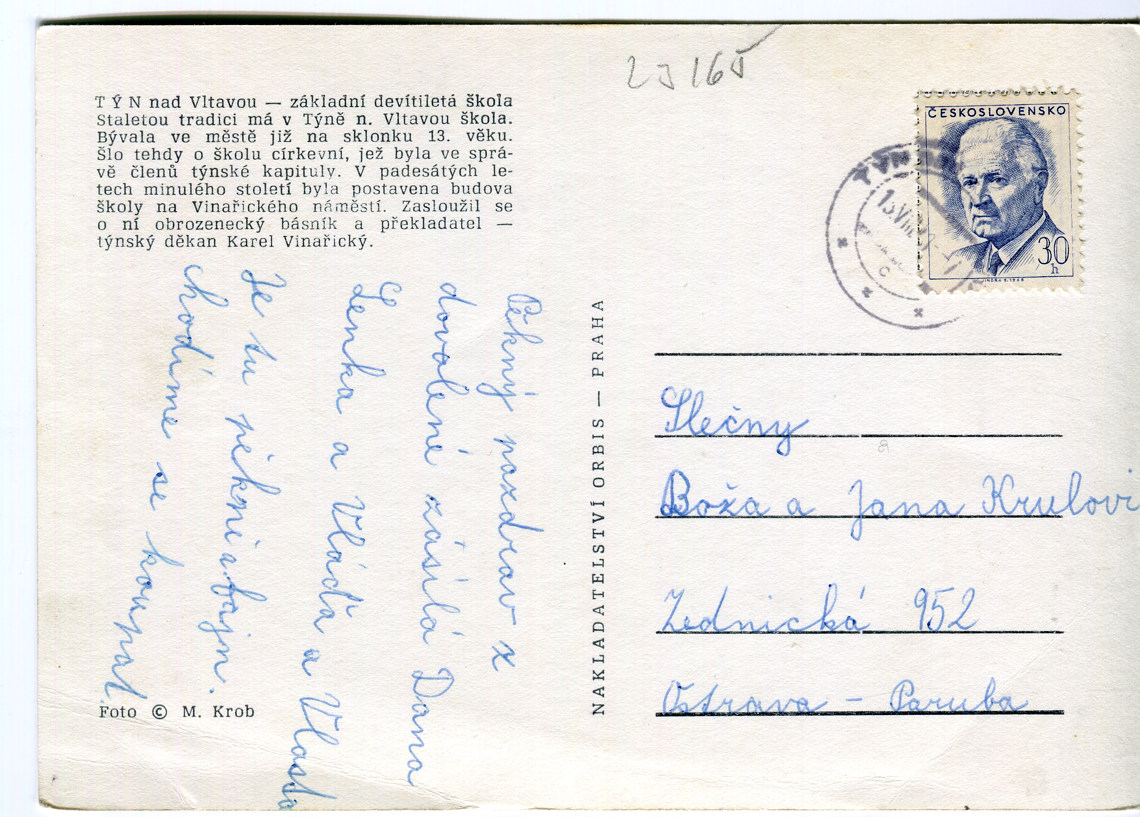 2J 165
TÝN nad Vltavou — základní devítiletá škola
Staletou tradici má v Týně n. Vltavou škola.
Bývala ve městě již na sklonku 13. věku.
Šlo tehdy o školu církevní, jež byla ve sprá-
vě členů týnské kapituly. V padesátých le-
tech minulého století byla postavena budova
školy na Vinařického náměstí. Zasloužil se
o ní obrozenecký básník a překladatel —
týnský děkan Karel Vinařický.
Pěkný pozdrav z
dovolené zásílá Dana
Lenka a Vláďa a Vlasta
Je tu pěkni a fajn.
chodíme se koupat.
Foto © M. Krob
NAKLADATELSTVÍ ORBIS — PRAHA
ČESKOSLOVENSKO
30
h
TÝN
Slečny
Boža a Jana Krulovi
Zednická 952
Ostrava - Poruba